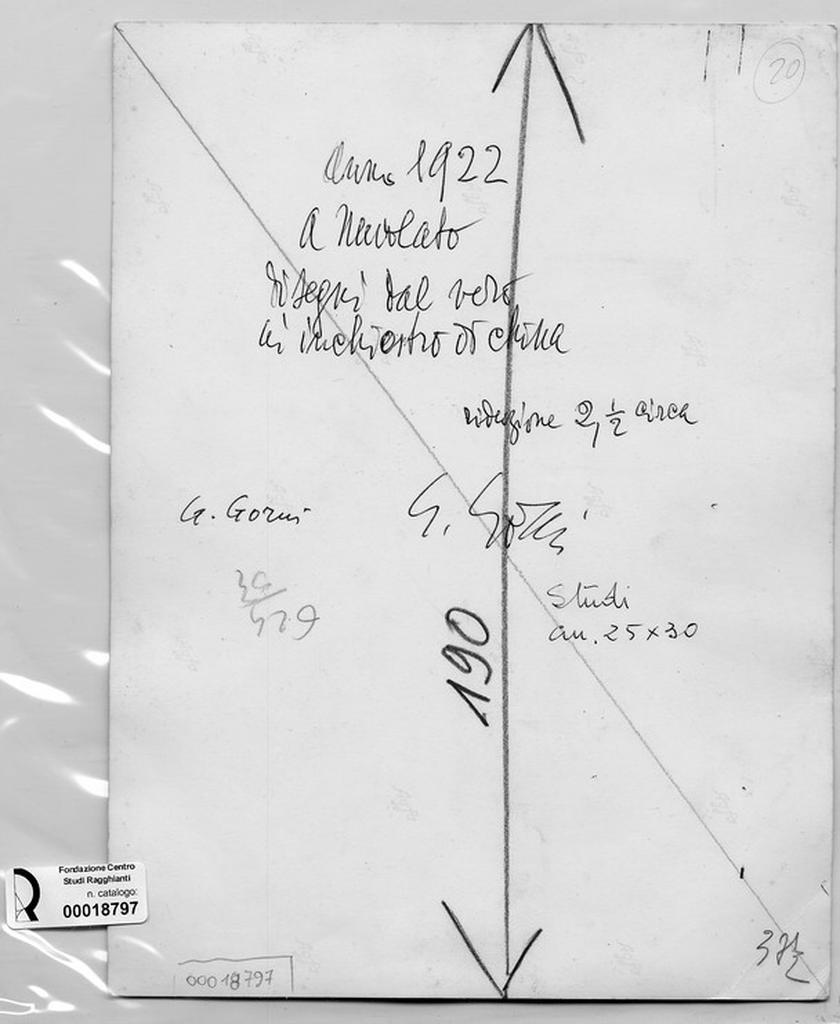 20
Anno 1922
A Nuvolato
disegni dal vero
ai inchiostro di china
riduzione 2, ½ circa
G. Gorni
G. Gorni
Studi
cm. 25 x 30
190
Fondazione Centro
Studi Ragghianti
n. catalogo:
00018797
00018797
37½